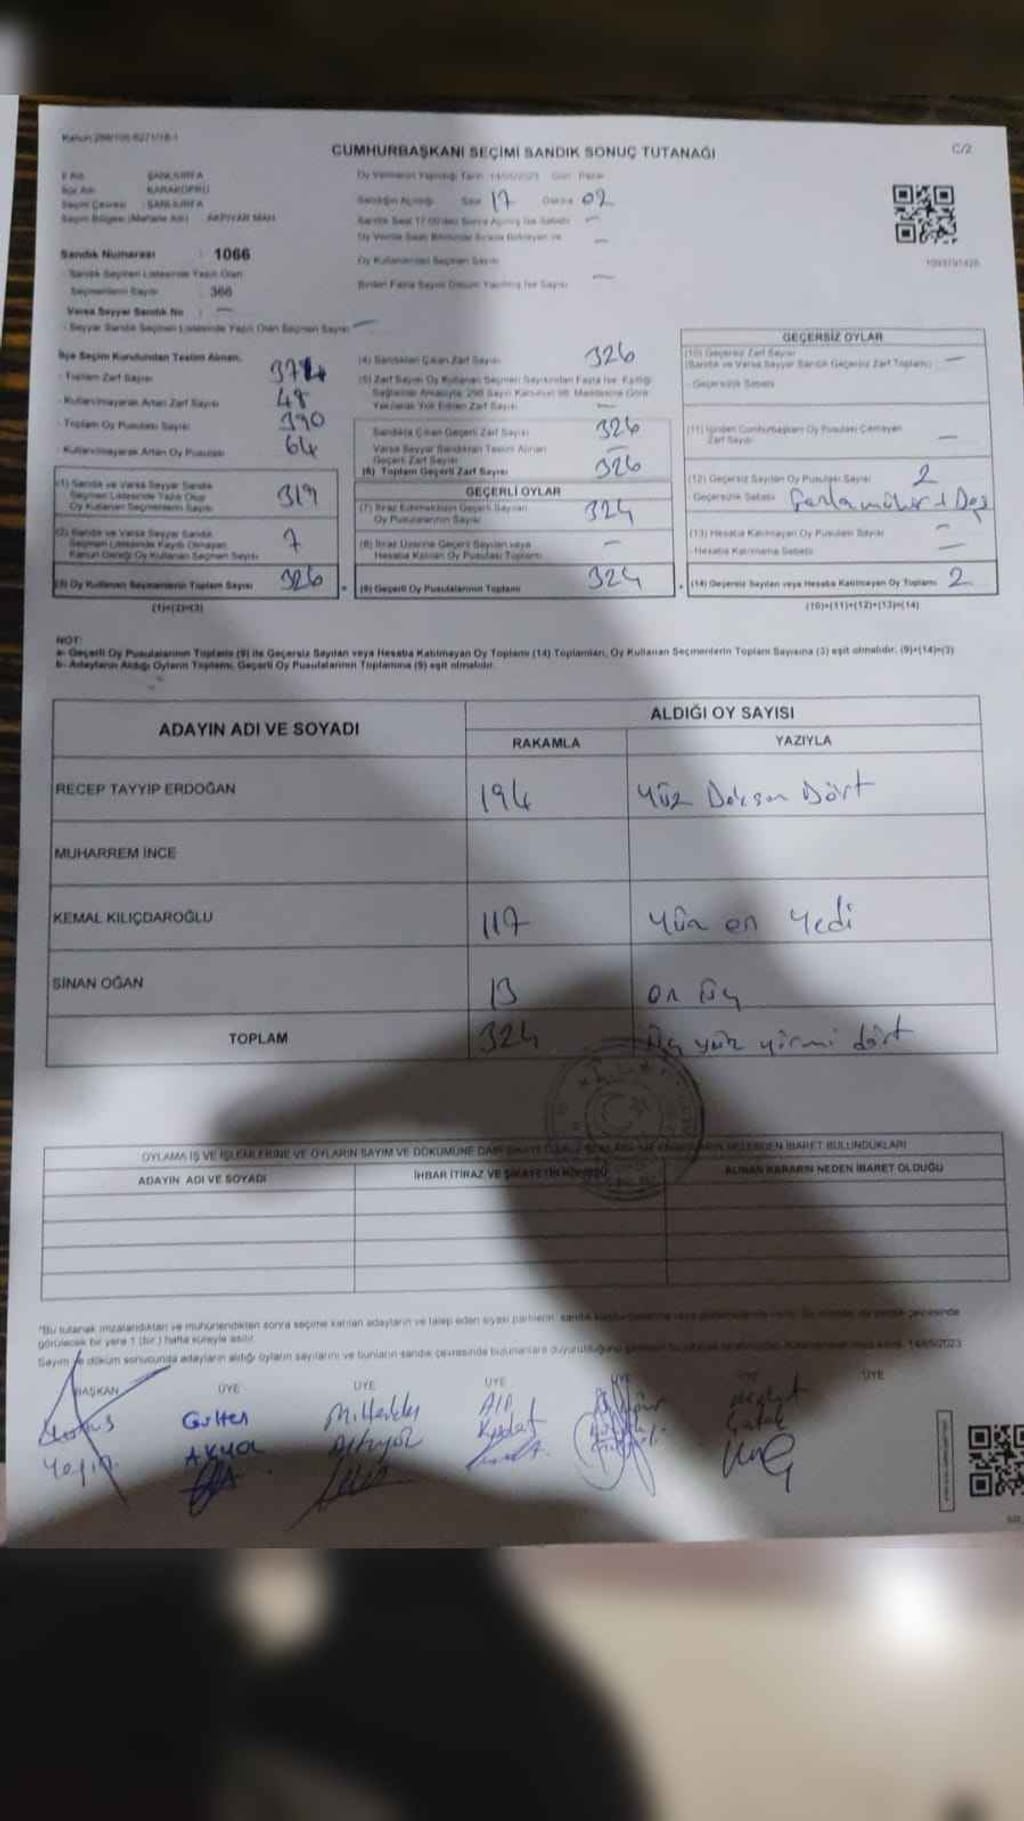 CUMHURBAŞKANI SEÇİMİ SANDIK SONUÇ TUTANAĞI
C/2
İl Adı ŞANLIURFA
İlçe Adı KARAKÖPRÜ
Seçim Çevresi : ŞANLIURFA
Seçim Bölgesi (Mahalle Adı) : AKPIYAR MAH.
Oy Vermenin Yapıldığı Tarih 14/05/2023 Gün Pazar
Sandığın Açılışı Saat 17 Dakika 02
Sandık Numarası : 1066
Sandık Seçmen Listesinde Yazılı Olan
Seçmenlerin Sayısı : 366
Varsa Seyyar Sandık No : —
Seyyar Sandık Seçmen Listesinde Yazılı Olan Seçmen Sayısı —
Oy Kullanan Seçmen Sayısı
İlçe Seçim Kurulundan Teslim Alınan,
- Toplam Zarf Sayısı
- Kullanılmayarak Artan Zarf Sayısı 48
- Toplam Oy Pusulası Sayısı 390
- Kullanılmayarak Artan Oy Pusulası 64
(1) Sandık ve Varsa Seyyar Sandık
Seçmen Listesinde Yazılı Olup
Oy Kullanan Seçmenlerin Sayısı 319
(2) Sandık ve Varsa Seyyar Sandık
Seçmen Listesinde Kayıtlı Olmayan
Kanun Gereği Oy Kullanan Seçmen Sayısı 7
(3) Oy Kullanan Seçmenlerin Toplam Sayısı 326
(1)+(2)=(3)
(4) Sandıktan Çıkan Zarf Sayısı 326
(5) Zarf Sayısı Oy Kullanan Seçmen Sayısından Fazla İse, Eşitliği
Sağlamak Amacıyla, 298 Sayılı Kanunun 98. Maddesine Göre
Yakılarak Yok Edilen Zarf Sayısı —
Sandıkta Çıkan Geçerli Zarf Sayısı 326
Varsa Seyyar Sandıktan Teslim Alınan
Geçerli Zarf Sayısı —
(6) Toplam Geçerli Zarf Sayısı 326
GEÇERLİ OYLAR
(7) İtiraz Edilmeksizin Geçerli Sayılan
Oy Pusulalarının Sayısı 324
(8) İtiraz Üzerine Geçerli Sayılan veya
Hesaba Katılan Oy Pusulası Toplamı —
(9) Geçerli Oy Pusulalarının Toplamı 324
GEÇERSİZ OYLAR
(10) Geçersiz Zarf Sayısı
(Sandık ve Varsa Seyyar Sandık Geçersiz Zarf Toplamı) —
Geçersizlik Sebebi
(11) İçinden Cumhurbaşkanı Oy Pusulası Çıkmayan
Zarf Sayısı —
(12) Geçersiz Sayılan Oy Pusulası Sayısı 2
Geçersizlik Sebebi Fazla mühür +
(13) Hesaba Katılmayan Oy Pusulası Sayısı —
Hesaba Katılmama Sebebi —
(14) Geçersiz Sayılan veya Hesaba Katılmayan Oy Toplamı 2
(10)+(11)+(12)+(13)=(14)
NOT:
a- Geçerli Oy Pusulalarının Toplamı (9) ile Geçersiz Sayılan veya Hesaba Katılmayan Oy Toplamı (14) Toplamları, Oy Kullanan Seçmenlerin Toplam Sayısına (3) eşit olmalıdır. (9)+(14)=(3)
b- Adayların Aldığı Oyların Toplamı, Geçerli Oy Pusulalarının Toplamına (9) eşit olmalıdır.
ADAYIN ADI VE SOYADI
ALDIĞI OY SAYISI
RAKAMLA YAZIYLA
RECEP TAYYİP ERDOĞAN 194 Yüz Doksan Dört
MUHARREM İNCE
KEMAL KILIÇDAROĞLU 117 Yüz on Yedi
SİNAN OĞAN 13 on üç
TOPLAM 324 üç yüz yirmi dört
OYLAMA İŞ VE İŞLEMLERİNE VE OYLARIN SAYIM VE DÖKÜMÜNE DAİR NEDEN İBARET BULUNDUKLARI
ADAYIN ADI VE SOYADI
İHBAR İTİRAZ VE ŞİKAYETİN KONUSU
ALINAN KARARIN NEDEN İBARET OLDUĞU
*Bu tutanak imzalandıktan ve mühürlendikten sonra seçime katılan adayların ve talep eden siyasi partilerin
görülecek bir yere 1 (bir) hafta süreyle asılır.
Sayım ve döküm sonucunda adayların aldığı oyların sayılarını ve bunların sandık çevresinde bulunanlara duyurulduğunu 14/05/2023
BAŞKAN ÜYE ÜYE ÜYE ÜYE ÜYE ÜYE